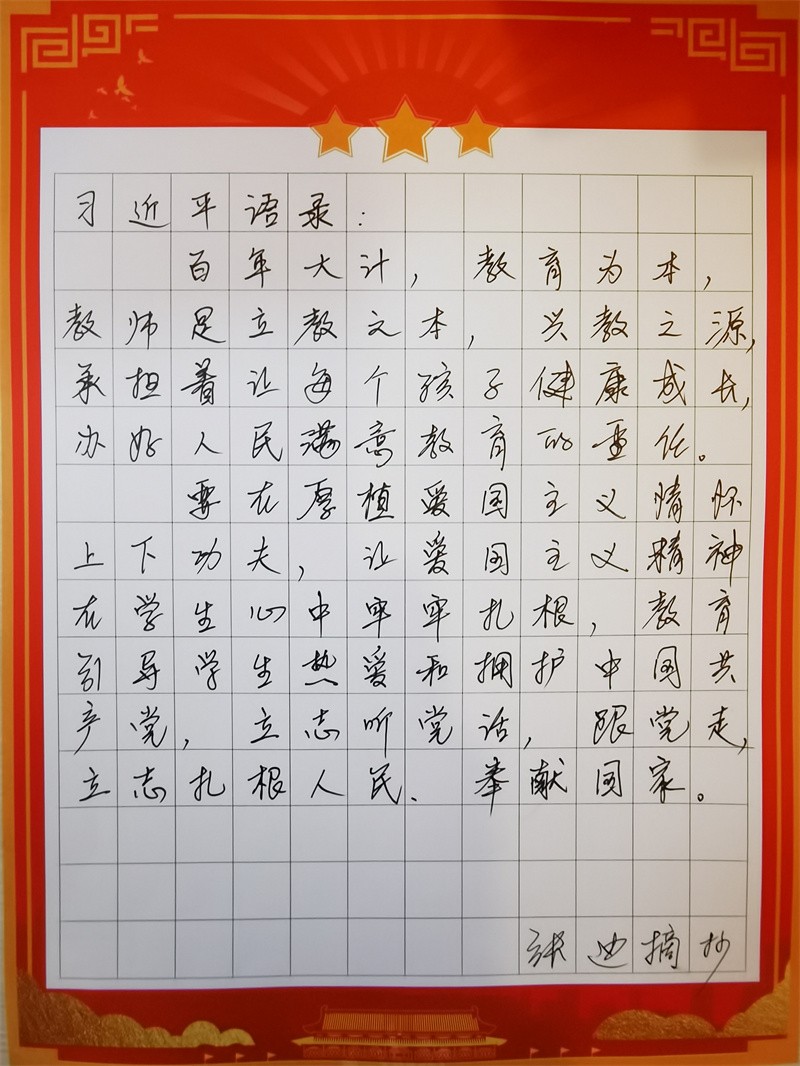 习近平语录：
百年大计，教育为本，
教师是立教之本，兴教之源，
承担着让每个孩子健康成长，
办好人民满意教育的重任。
要在厚植爱国主义情怀
上下功夫，让爱国主义精神
在学生心中牢牢扎根，教育
引导学生热爱和拥护中国共
产党，立志听党话，跟党走，
立志扎根人民、奉献国家。
张迪摘抄